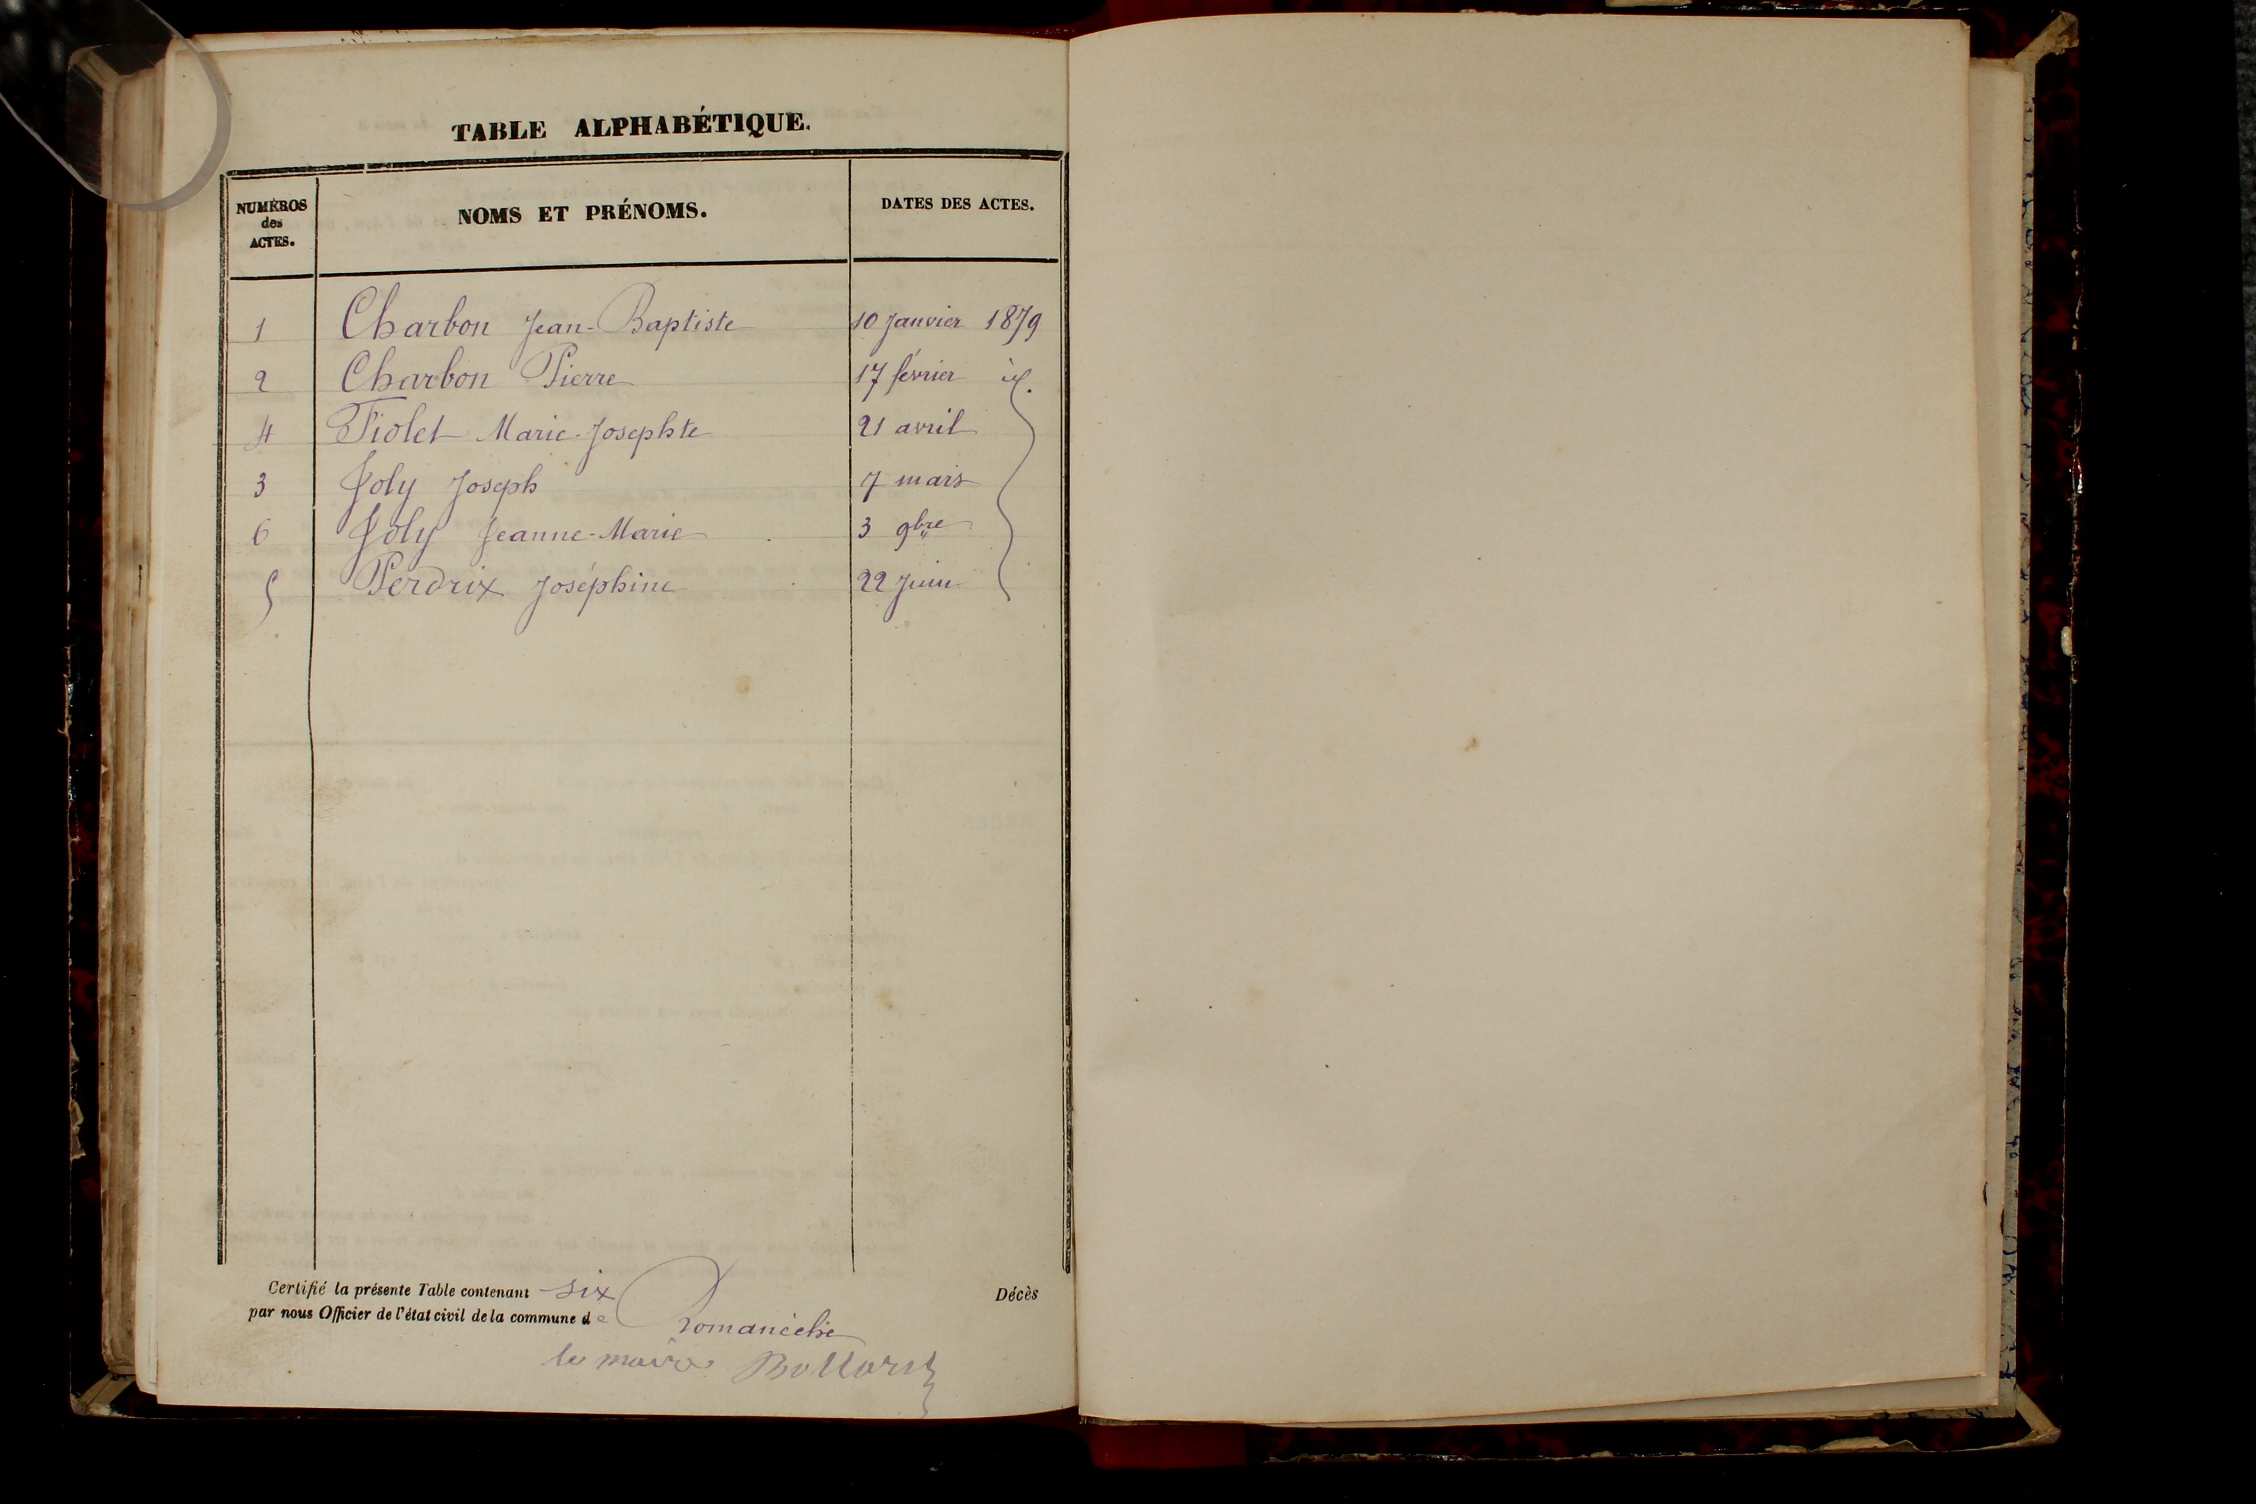 TABLE ALPHABÉTIQUE.
NUMÉROS des ACTES. NOMS ET PRÉNOMS. DATES DES ACTES.
1 Charbon Jean-Baptiste 10 Janvier 1879
2 Charbon Pierre 17 février id.
4 Fiolet Marie-Josephte 21 avril
3 Joly Joseph 7 mars
6 Joly Jeanne-Marie 3 9bre
5 Perdrix Joséphine 22 Juin
Certifié la présente Table contenant six Décès
par nous Officier de l'état civil de la commune de Romanèche
le maire